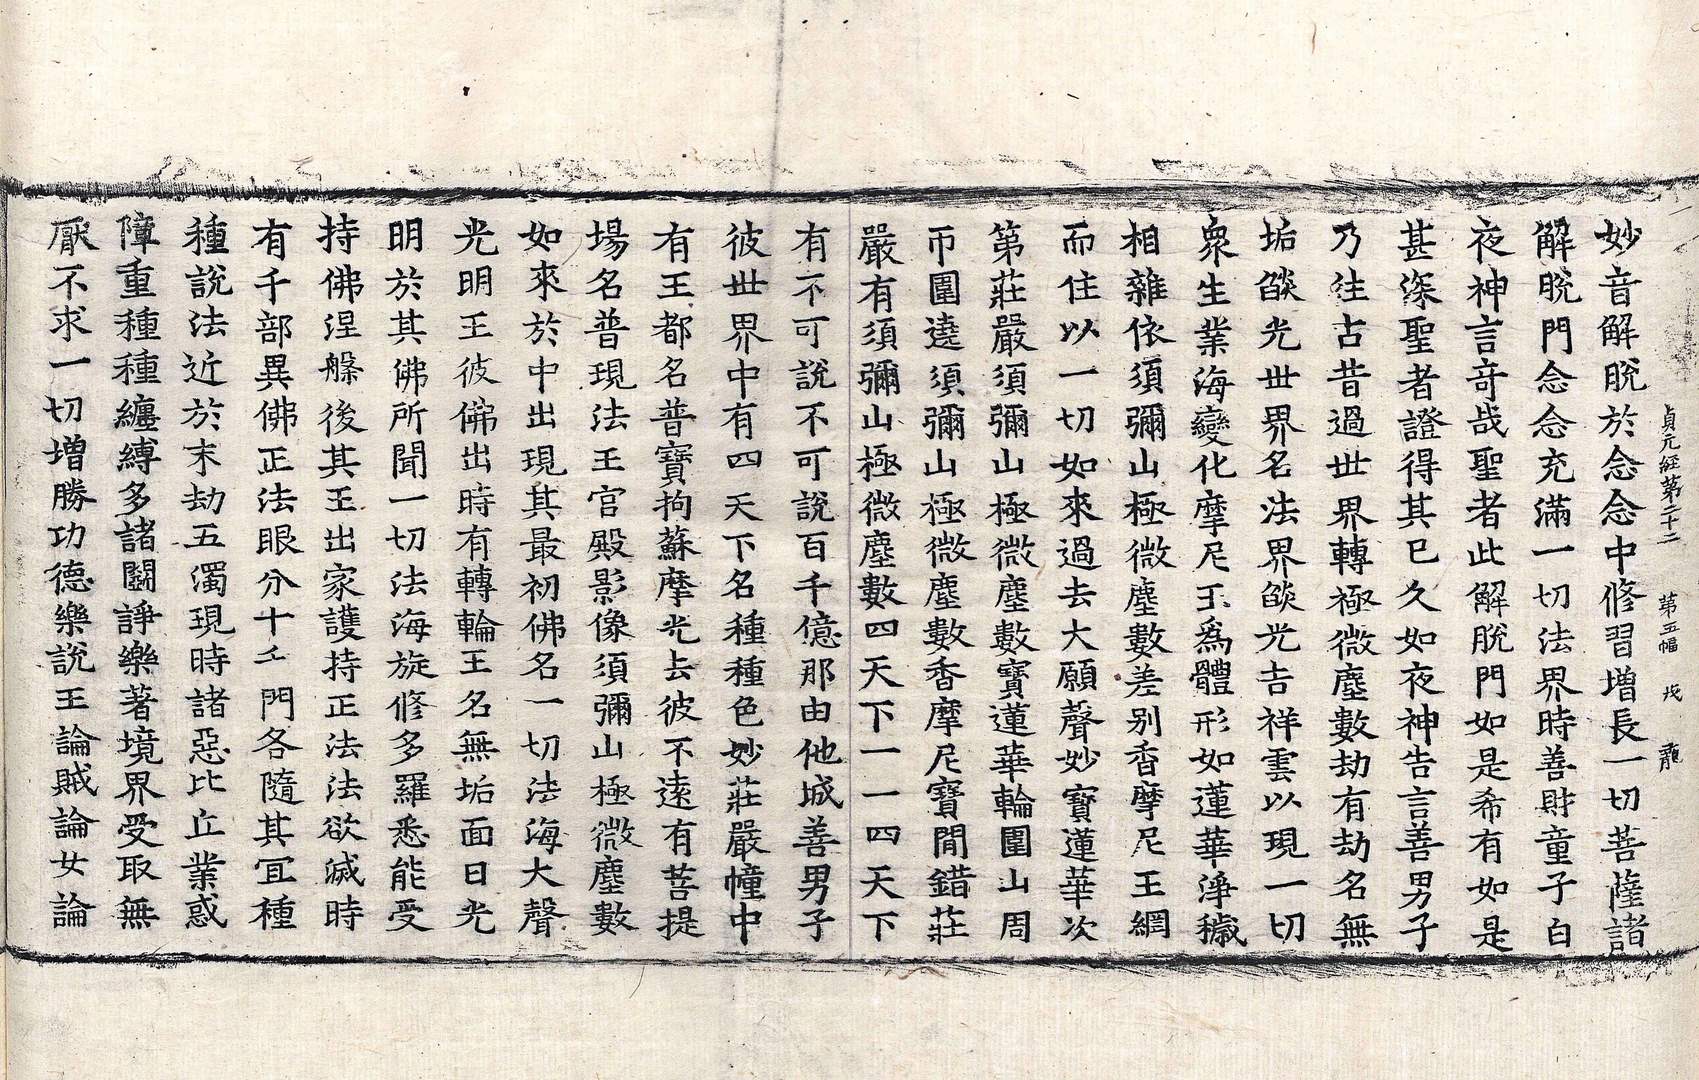 貞元經第二十二　第五幅　戍　龍
妙音解脫於念念中修習增長一切菩薩諸
解脫門念念充滿一切法界時善財童子白
夜神言奇哉聖者此解脫門如是希有如是
甚深聖者證得其已久如夜神告言善男子
乃往古昔過世界轉極微塵數劫有劫名無
垢燄光世界名法界燄光吉祥雲以現一切
衆生業海變化摩尼王爲體形如蓮華淨穢
相雜依須彌山極微塵數差别香摩尼王網
而住以一切如來過去大願聲妙寶蓮華次
第莊嚴須彌山極微塵數寶蓮華輪圍山周
帀圍遶須彌山極微塵數香摩尼寶間錯莊
嚴有須彌山極微塵數四天下一一四天下
有不可說不可說百千億那由他城善男子
彼世界中有四天下名種種色妙莊嚴幢中
有王都名普寶拘蘇摩光去彼不遠有菩提
場名普現法王宮殿影像須彌山極微塵數
如來於中出現其最初佛名一切法海大聲
光明王彼佛出時有轉輪王名無垢面日光
明於其佛所聞一切法海旋修多羅悉能受
持佛涅槃後其王出家護持正法法欲滅時
有千部異佛正法眼分十千門各隨其冝種
種說法近於末劫五濁現時諸惡比丘業惑
障重種種纏縛多諸鬪諍樂著境界受取無
厭不求一切增勝功德樂說王論賊論女論